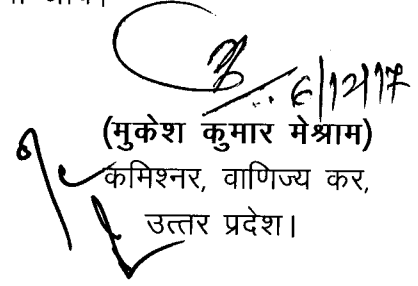 6/12/17
(मुकेश कुमार मेश्राम)
कमिश्नर, वाणिज्य कर,
उत्तर प्रदेश।